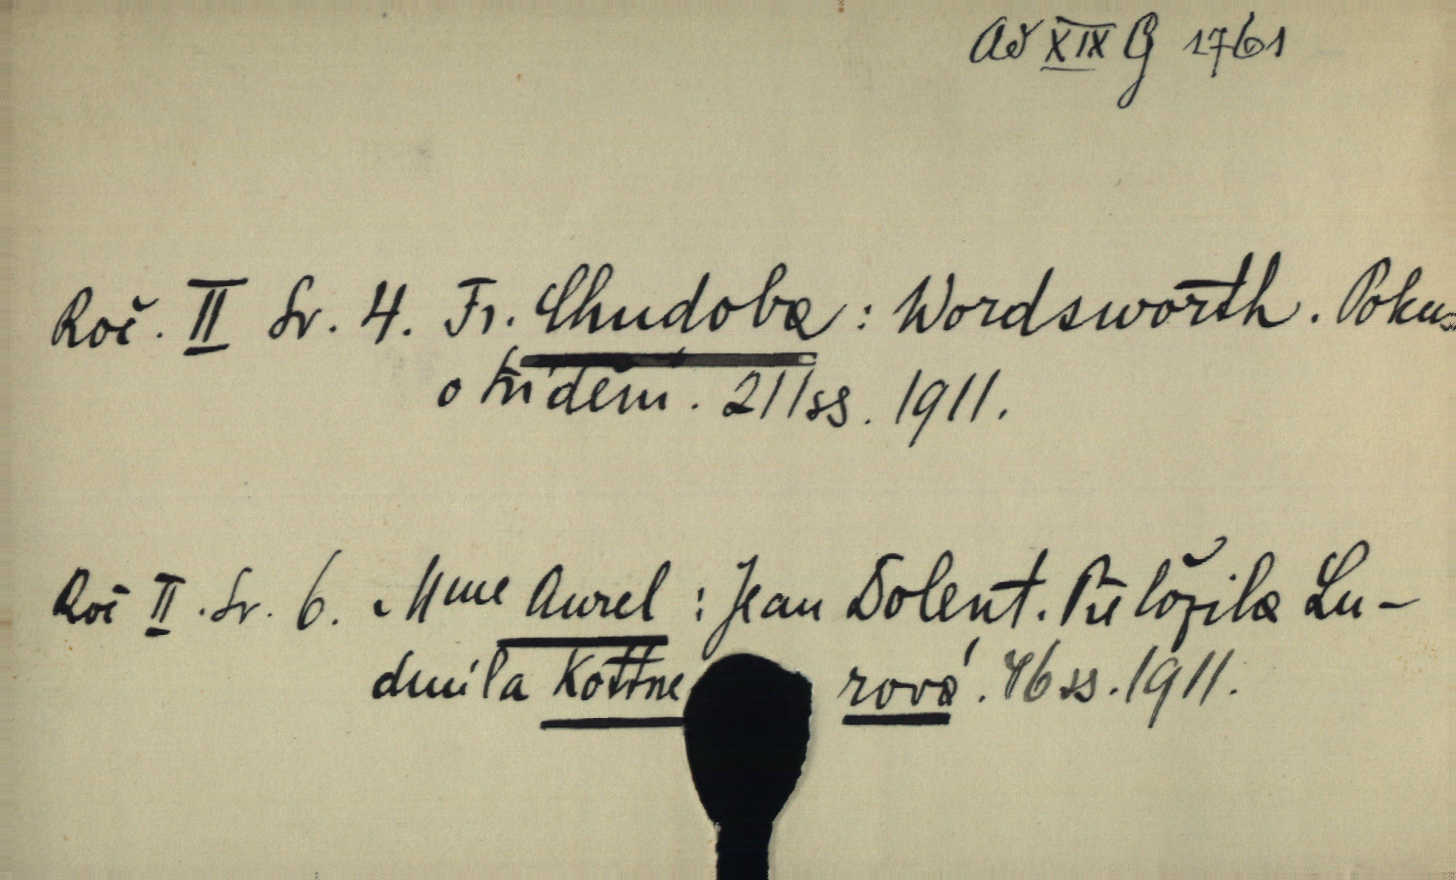 Ad XIX G 1761
Roč. II Sv. 4. Fr. Chudoba: Wordsworth. Pokus
o 211ss. 1911.
Roč II. Sv. 6. Mme Aurel: Jean Dolent. Přeložila Lu-
dmila Kottne rová. 46 ss. 1911.